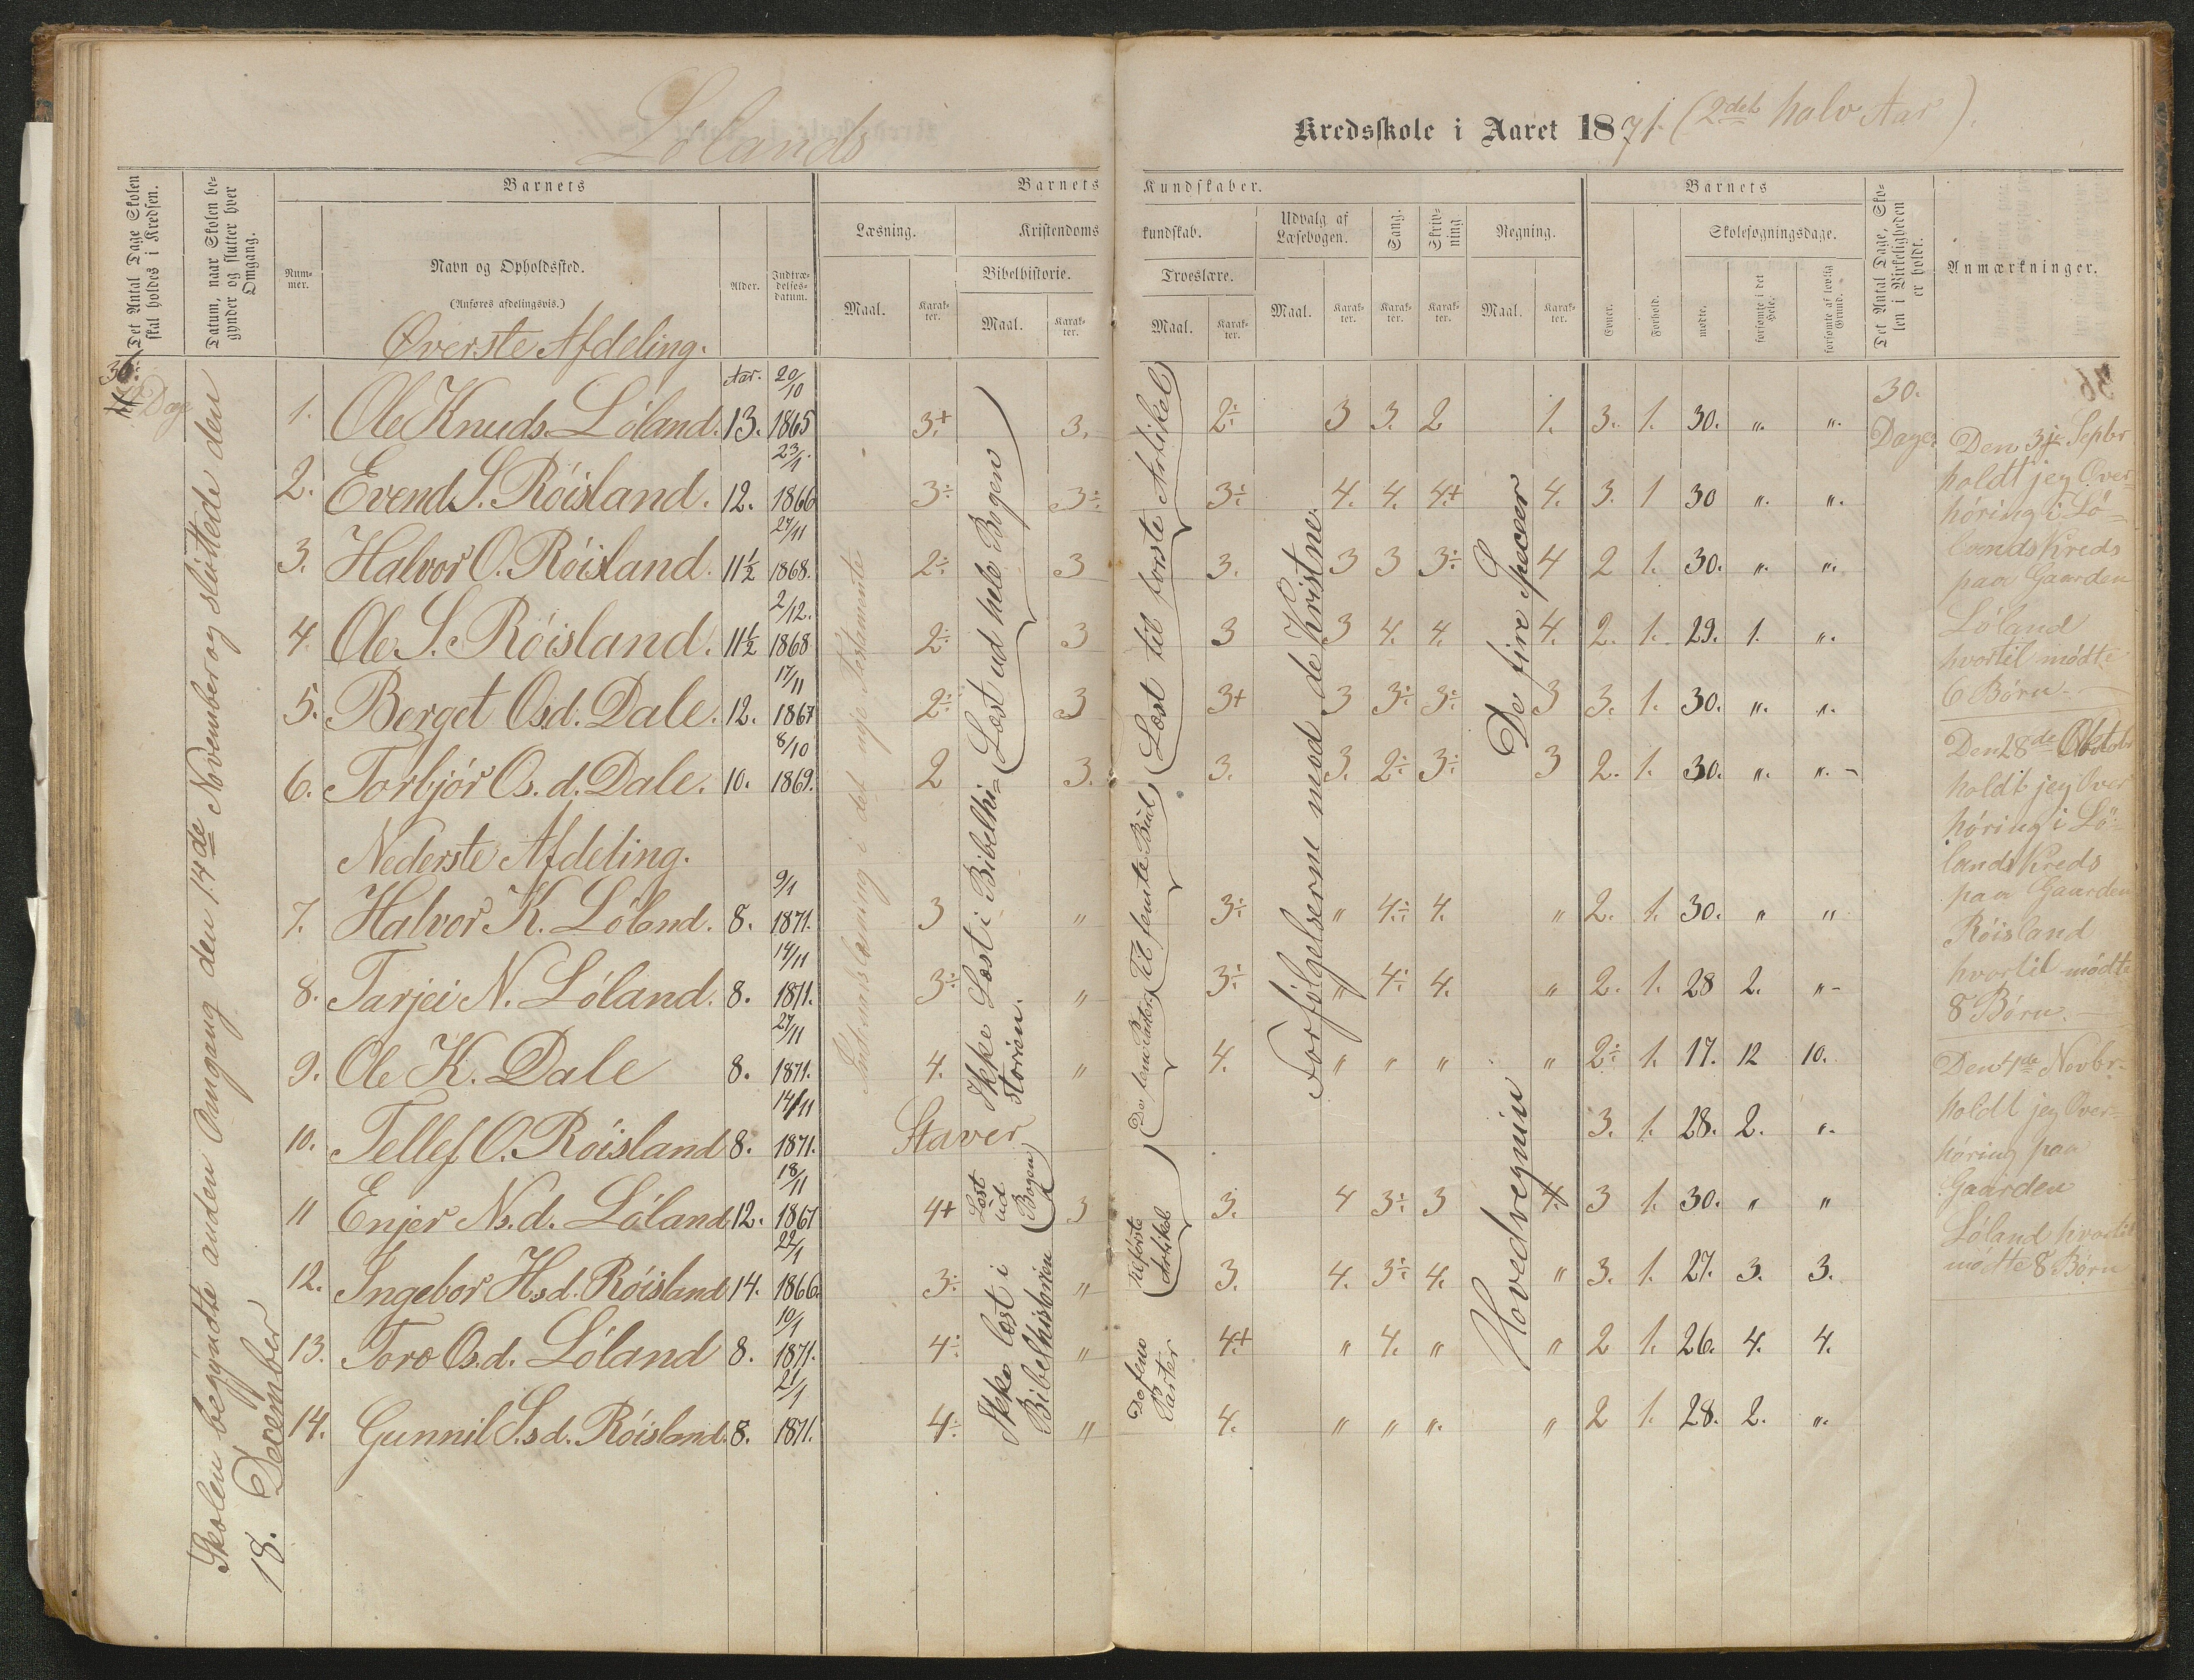 Lölands
Kredsskole i Aaret 1871. (2det halv Aar).
Det Antal Dage Skolen skal holdes i Kredsen.
Datum, naar Skolen begynder og slutter hver Omgang.
Barnets
Nummer.
Navn og Opholdssted.
(Anføres afdelingsvis.)
Alder.
Indtrædelses-datum.
Barnets Kundskaber.
Læsning.
Maal.
Karakter.
Kristendomskundskab.
Bibelhistorie.
Maal.
Karakter.
Troeslære.
Maal.
Karakter.
Udvalg af Læsebogen.
Maal.
Karakter.
Sang.
Karakter.
Skrivning.
Karakter.
Regning.
Maal.
Karakter.
Barnets
Evner.
Forhold.
Skolesøgningsdage.
mødte.
forsømte i det Hele.
forsømte af lovlig Grund.
Det Antal Dage, Skolen i Virkeligheden er holdt.
Anmærkninger.
36.
Dage
Skolen begyndte anden Omgang den 14de November og sluttede den
18. December
Øverste Afdeling.
Aar.
1. Ole Knuds. Löland. 13. 20/10 1865 3+ 3. 2÷ 3 3. 2 1. 3. 1. 30. " "
2. Evend S. Röisland. 12. 23/1 1866 3÷ 3÷ 3÷ 4. 4. 4+ 4. 3. 1 30 " "
3. Halvor O. Röisland. 11½ 27/11 1868. 2÷ 3 3. 3 3 3÷ 4 2 1. 30. " "
4. Ole S. Röisland. 11½ 2/12. 1868 2÷ 3 3 3 4. 4. 4. 2. 1. 29. 1. "
5. Berget Osd. Dale. 12. 17/11 1867 2÷ 3 3+ 3 3÷ 3÷ 3 3. 1. 30. " "
6. Torbjör Os.d. Dale. 10. 8/10 1869. 2 3. 3. 3. 2÷ 3÷ 3 2. 1. 30. " "
Nederste Afdeling.
7. Halvor K. Löland. 8. 9/1 1871. 3 " 3÷ " 4÷ 4. " 2. 1. 30. " "
8. Tarjei N. Löland. 8. 14/11 1871. 3÷ " 3÷ " 4÷ 4. " 2. 1. 28 2. "
9. Ole K. Dale 8. 27/11 1871. 4. " 4. " " " " 2÷ 1. 17. 12 10.
10. Tellef O. Röisland 8. 14/11 1871. Staver 3. 1. 28. 2. "
11 Enjer Ns.d. Löland 12. 18/11 1867 4+ 3 3. 4 3÷ 3 4. 3 1. 30. " "
12. Ingebor Hsd. Röisland 14. 22/1 1866. 3÷ " 3. 4. 3÷ 4. " 3. 1. 27. 3. 3.
13. Toro Osd. Löland 8. 10/1 1871. 4÷ " 4+ " 4. " " 2 1. 26. 4. 4.
14. Gunnil S.sd. Röisland. 8. 21/1 1871. 4÷ " 4. " " " " 2 1. 28. 2. "
Indenadslæsning i det nye Testamente
Læst ud hele Bogen
Ikke Læst i Bibelhistorien.
Læst ud Bogen
Ikke læst i Bibelhistorien
Læst til første Artikel
Til femte Bud
De fem Parter
Til første Artikel
De fem Parter
Forfölgelserne mod de Kristne.
De fire Specier
Hovedregnin
30.
Dage.
Den 3je Septbr
holdt jeg Over-
höring i Lö-
lands Kreds
paa Gaarden
Löland
hvortil mödte
6 Börn.
Den 28de Oktobr
holdt jeg Over
höring i Lö-
lands Kreds
paa Gaarden
Röisland
hvortil mödte
8 Börn.
Den 4de Novbr.
holdt jeg Over-
höring paa
Gaarden
Löland hvortil
mödte 8 Börn